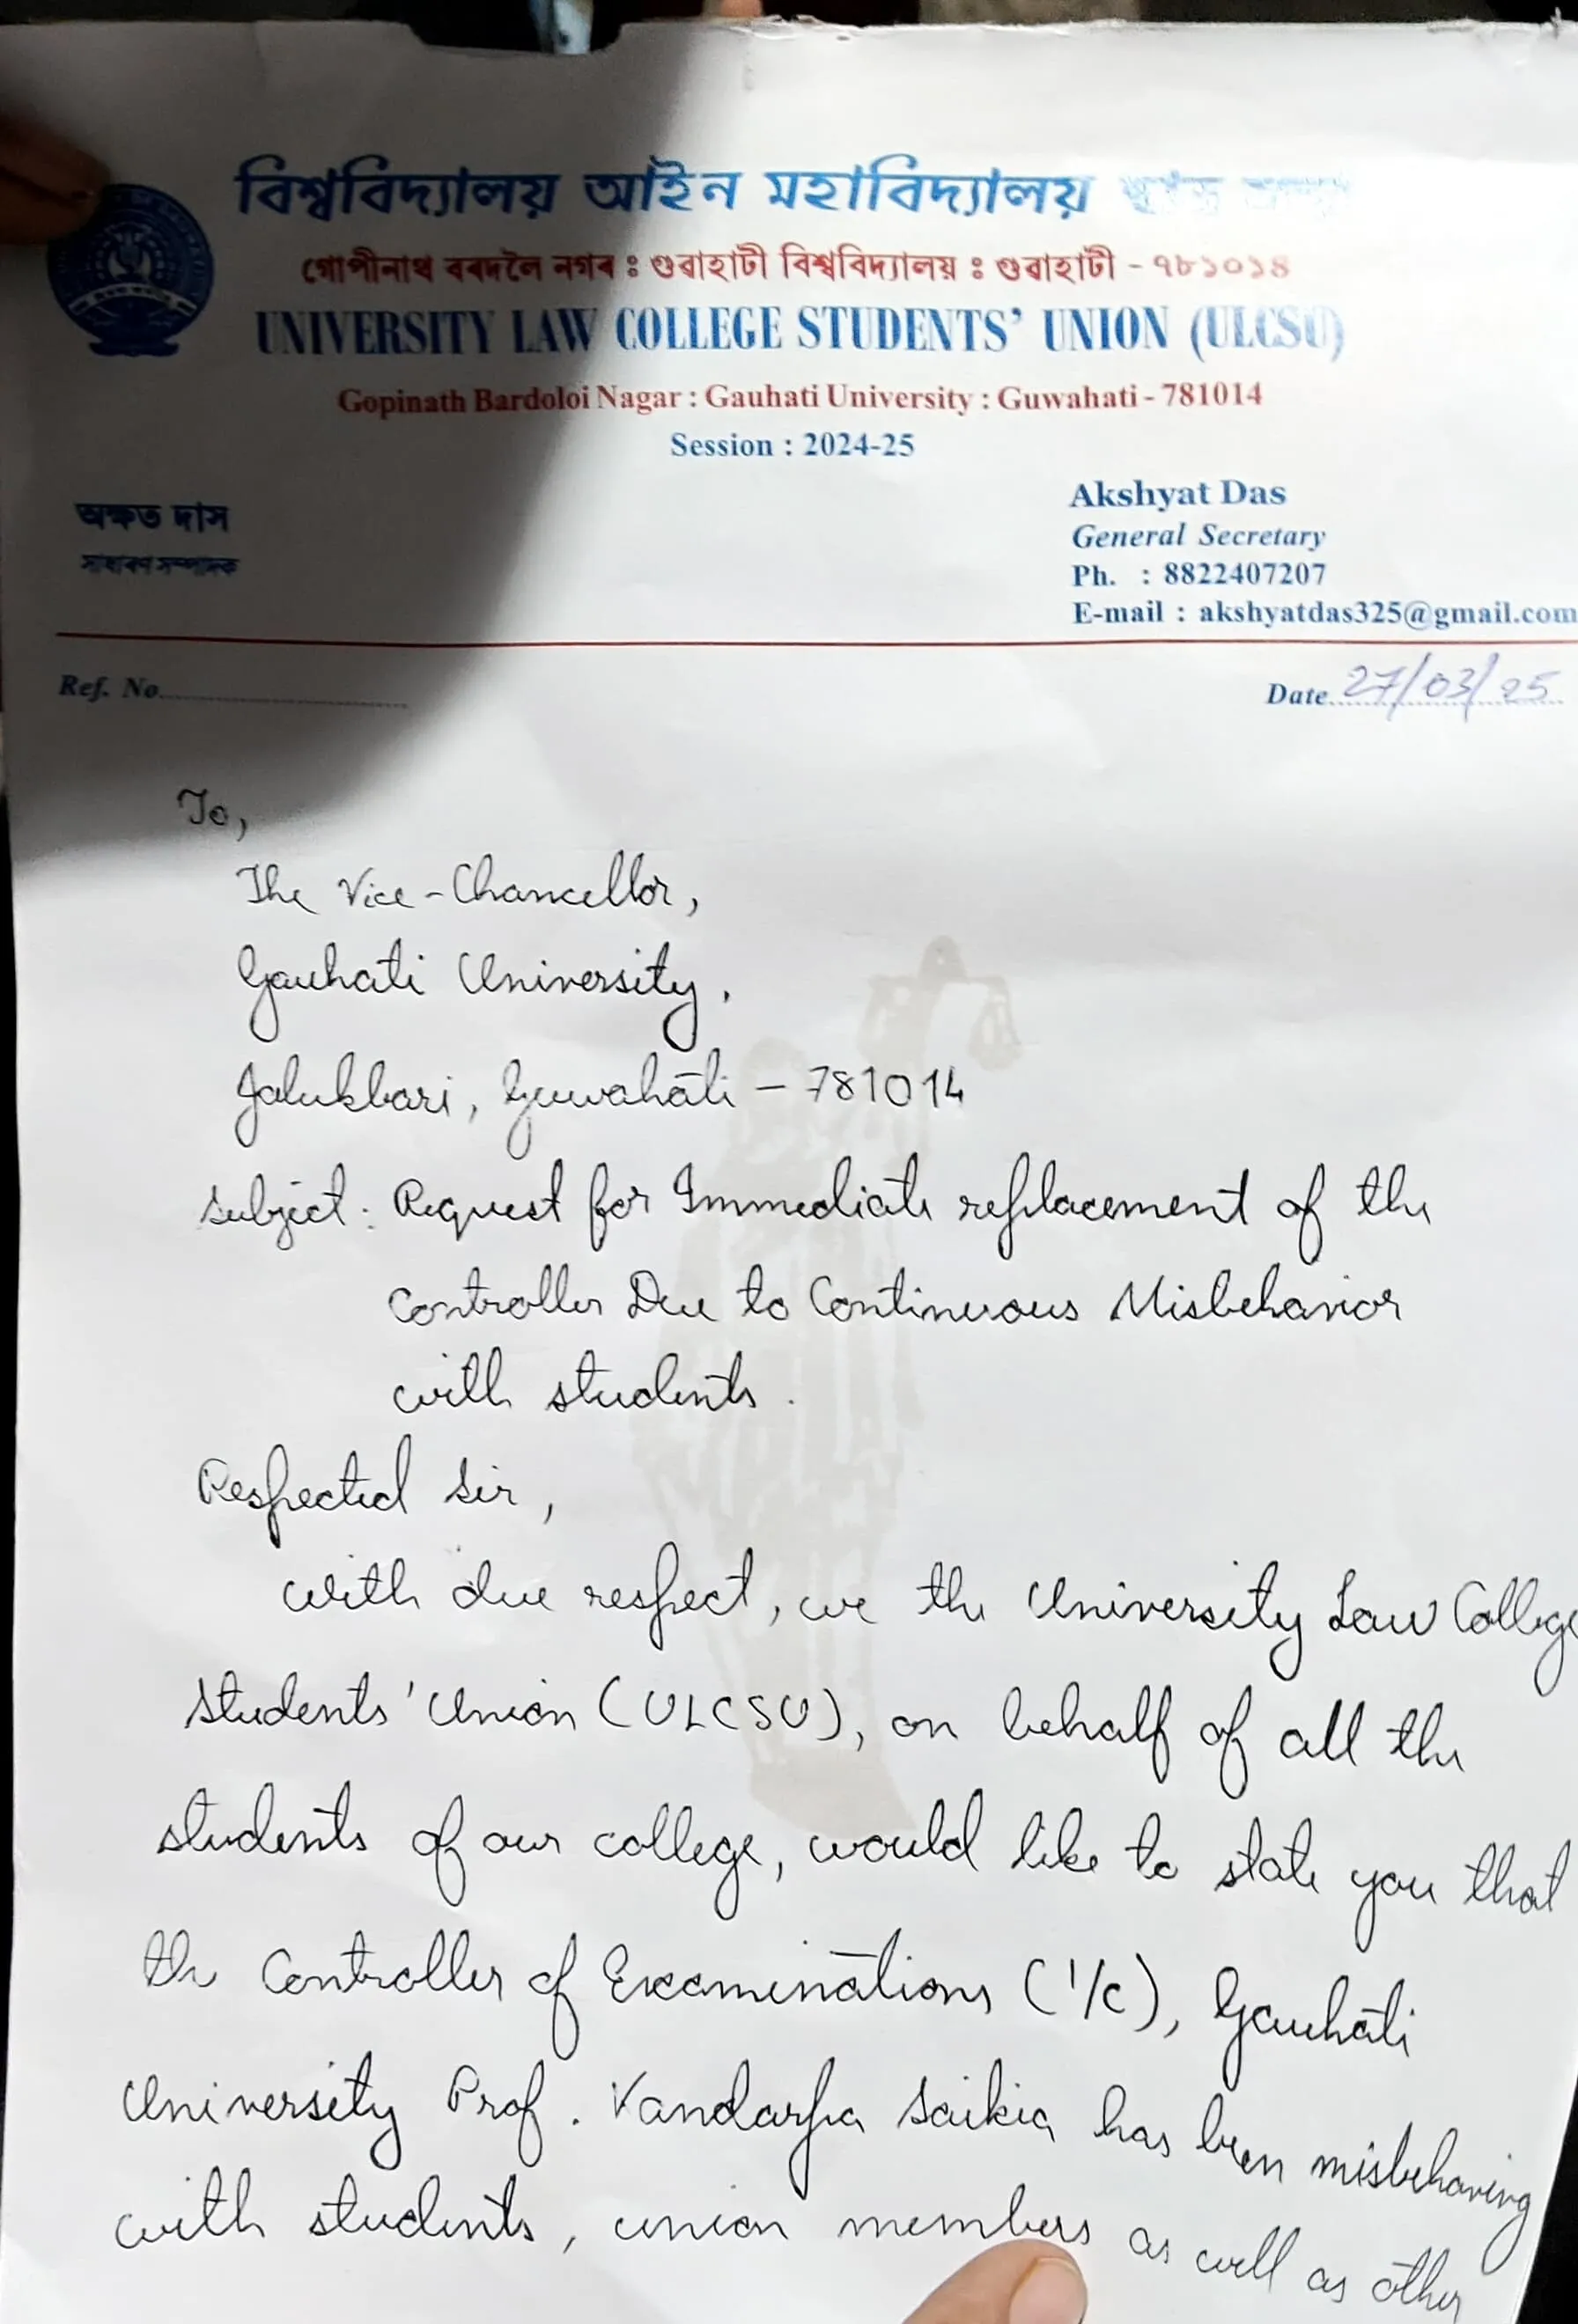 বিশ্ববিদ্যালয় আইন মহাবিদ্যালয়
গোপীনাথ বৰদলৈ নগৰ : গুৱাহাটী বিশ্ববিদ্যালয় : গুৱাহাটী - ৭৮১০১৪
UNIVERSITY LAW COLLEGE STUDENTS' UNION (ULCSU)
Gopinath Bardoloi Nagar : Gauhati University : Guwahati - 781014
Session : 2024-25
অক্ষত দাস
সাধাৰণ সম্পাদক
Akshyat Das
General Secretary
Ph. : 8822407207
E-mail : akshyatdas325@gmail.com
Ref. No.
Date 27/03/25
To,
The Vice-Chancellor,
Gauhati University.
Jalukbari, Guwahati - 781014
Subject: Request for Immediate replacement of the
Controller Due to Continuous Misbehavior
with students.
Respected Sir,
With due respect, we the University Law College
Students' Union (ULCSU), on behalf of all the
students of our college, would like to state you that
the Controller of Examinations (I/C), Gauhati
University Prof. Kandarpa Saikia has been misbehaving
with students, union members as well as other